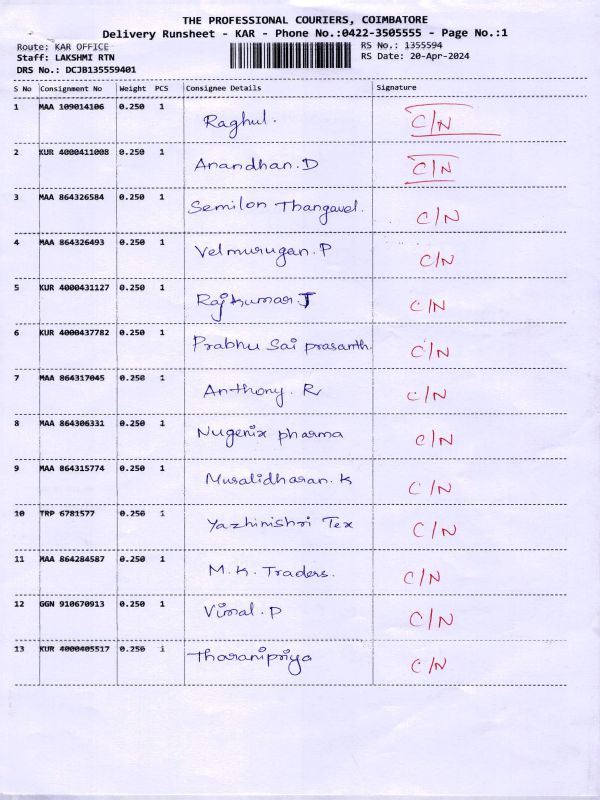 THE PROFESSIONAL COURIERS, COIMBATORE
Delivery Runsheet - KAR - Phone No.:0422-3505555 - Page No.:1
Route: KAR OFFICE RS No.: 1355594
Staff: LAKSHMI RTN RS Date: 20-Apr-2024
DRS No.: DCJB135559401
S No Consignment No Weight PCS Consignee Details Signature
1 MAA 109014106 0.250 1 Raghul. C/N
2 KUR 4000411008 0.250 1 Anandhan.D C/N
3 MAA 864326584 0.250 1 Semilon Thangavel. C/N
4 MAA 864326493 0.250 1 Velmurugan.P C/N
5 KUR 4000431127 0.250 1 Rajkumar.J C/N
6 KUR 4000437782 0.250 1 Prabhu Sai prasanth. C/N
7 MAA 864317045 0.250 1 Anthony. R C/N
8 MAA 864306331 0.250 1 Nugenix pharma C/N
9 MAA 864315774 0.250 1 Muralidharan.K C/N
10 TRP 6781577 0.250 1 Yazhinishri Tex C/N
11 MAA 864284587 0.250 1 M.K. Traders. C/N
12 GGN 910670913 0.250 1 Vimal.P C/N
13 KUR 4000405517 0.250 1 Tharanipriya C/N